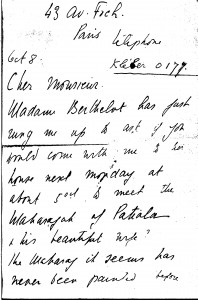 43 Av. Foch.
Paris
telephone
Oct 8.
Kléber 0177.
Cher Monsieur.
Madame Berthelot has just
rung me up to ask if you
would come with me to her
house next monday at
about to meet the
Maharajah of Patiala
& his beautiful wife"
The Maharaj it seems has
never been painted before